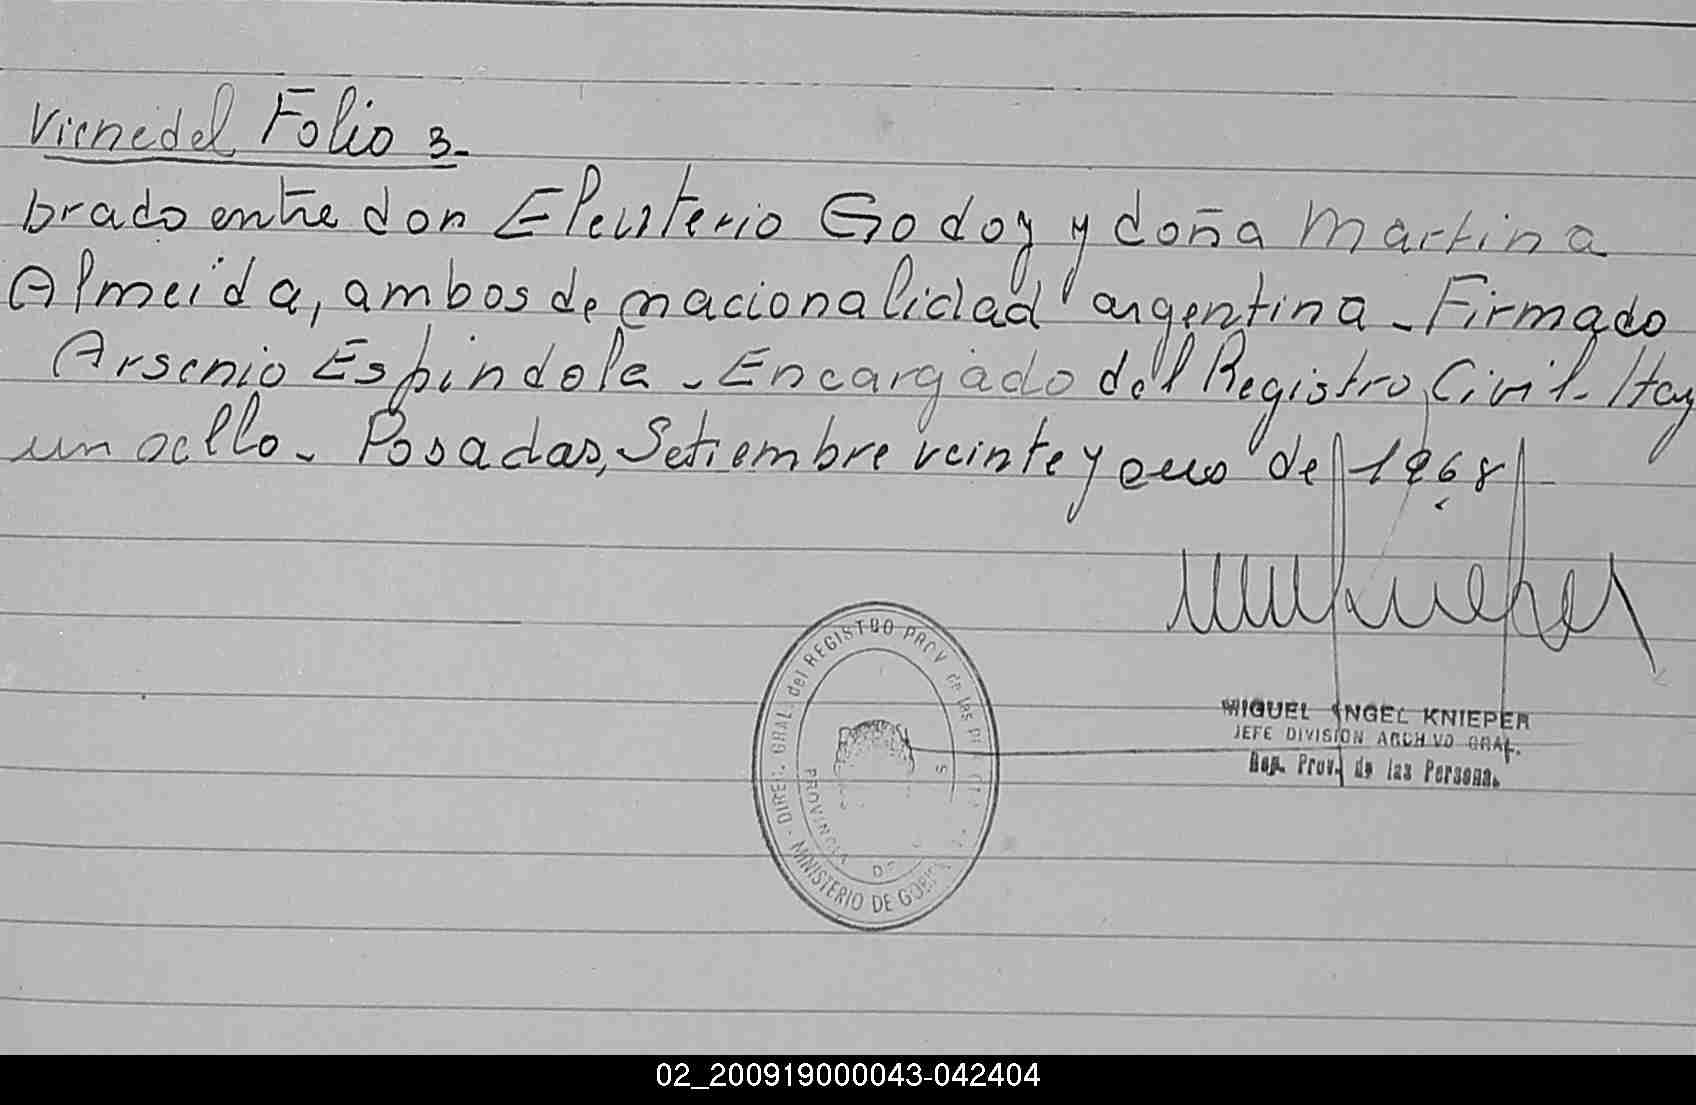 Viene del Folio 3-
brado entre don Eleuterio Godoy y doña Martina
Almeida, ambos de nacionalidad argentina - Firmado
Arsenio Espindola - Encargado del Registro Civil - Hay
un sello - Posadas, Setiembre veinte y de 1968
DIREC. GRAL. del REGISTRO PROV de las
MINISTERIO DE
PROVINCIA DE
MIGUEL ANGEL KNIEPER
JEFE DIVISION ARCHIVO GRAL.
Reg. Prov. de las Persona.
02_200919000043-042404